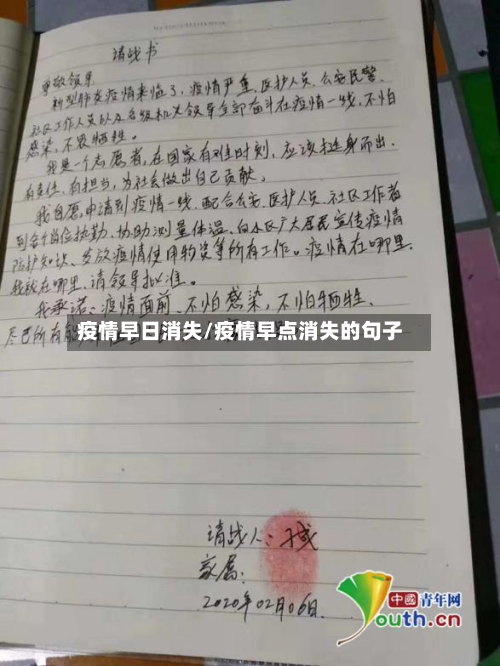 请战书
尊敬领导
新型肺炎疫情来临了，疫情严重，医护人员、公安民警、
社区工作人员以及各级机关领导全部奋斗在疫情一线，不怕
感染，不畏牺牲。
我是一个志愿者，在国家有难时刻，应该挺身而出，
有责任、有担当，为社会做出自己贡献。
我自愿申请到疫情一线，配合公安、医护人员、社区工作者
到各岗位执勤、协助测量体温、向小区广大居民宣传疫情
防护知识、发放疫情使用物资等所有工作。疫情在哪里
我就在哪里，请领导批准。
我承诺：疫情面前、不怕感染，不怕牺牲，
尽己所有能
疫情早日消失/疫情早点消失的句子
请战人：
家属：
2020年02月06日.
中國青年网
Youth.cn